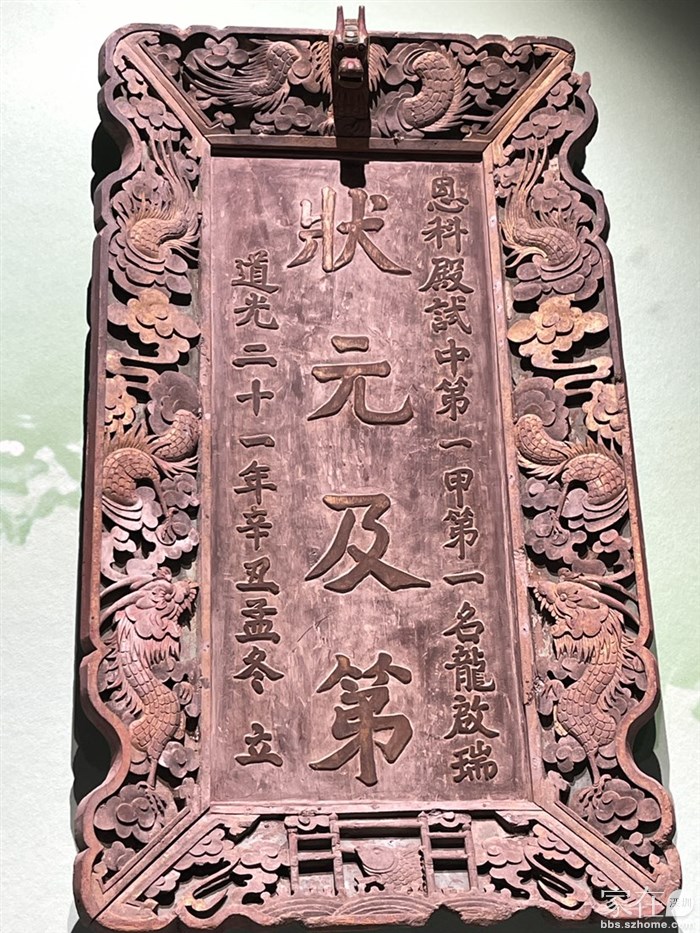 恩科殿試中第一甲第一名龍啟瑞
狀元及第
道光二十一年辛丑孟冬 立
家在深圳
bbs.szhome.com